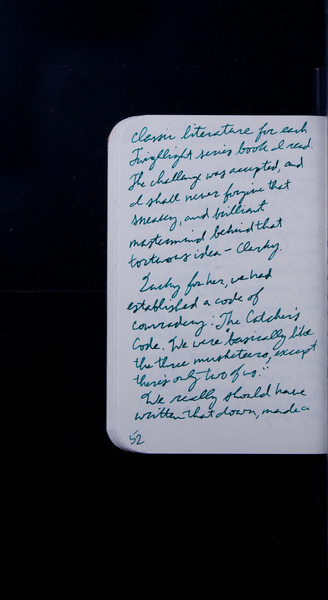 classic literature for each
Twighlight series book I read.
The challenge was accepted, and
I shall never forgive that
sneaky, and brilliant
mastermind behind that
torturous idea – Clarky.
Lucky for her, we had
established a code of
comradery: The Catcher's
Code. We were "basically like
the three musketeers, except
there's only two of us."
We really should have
written that down, made a
52